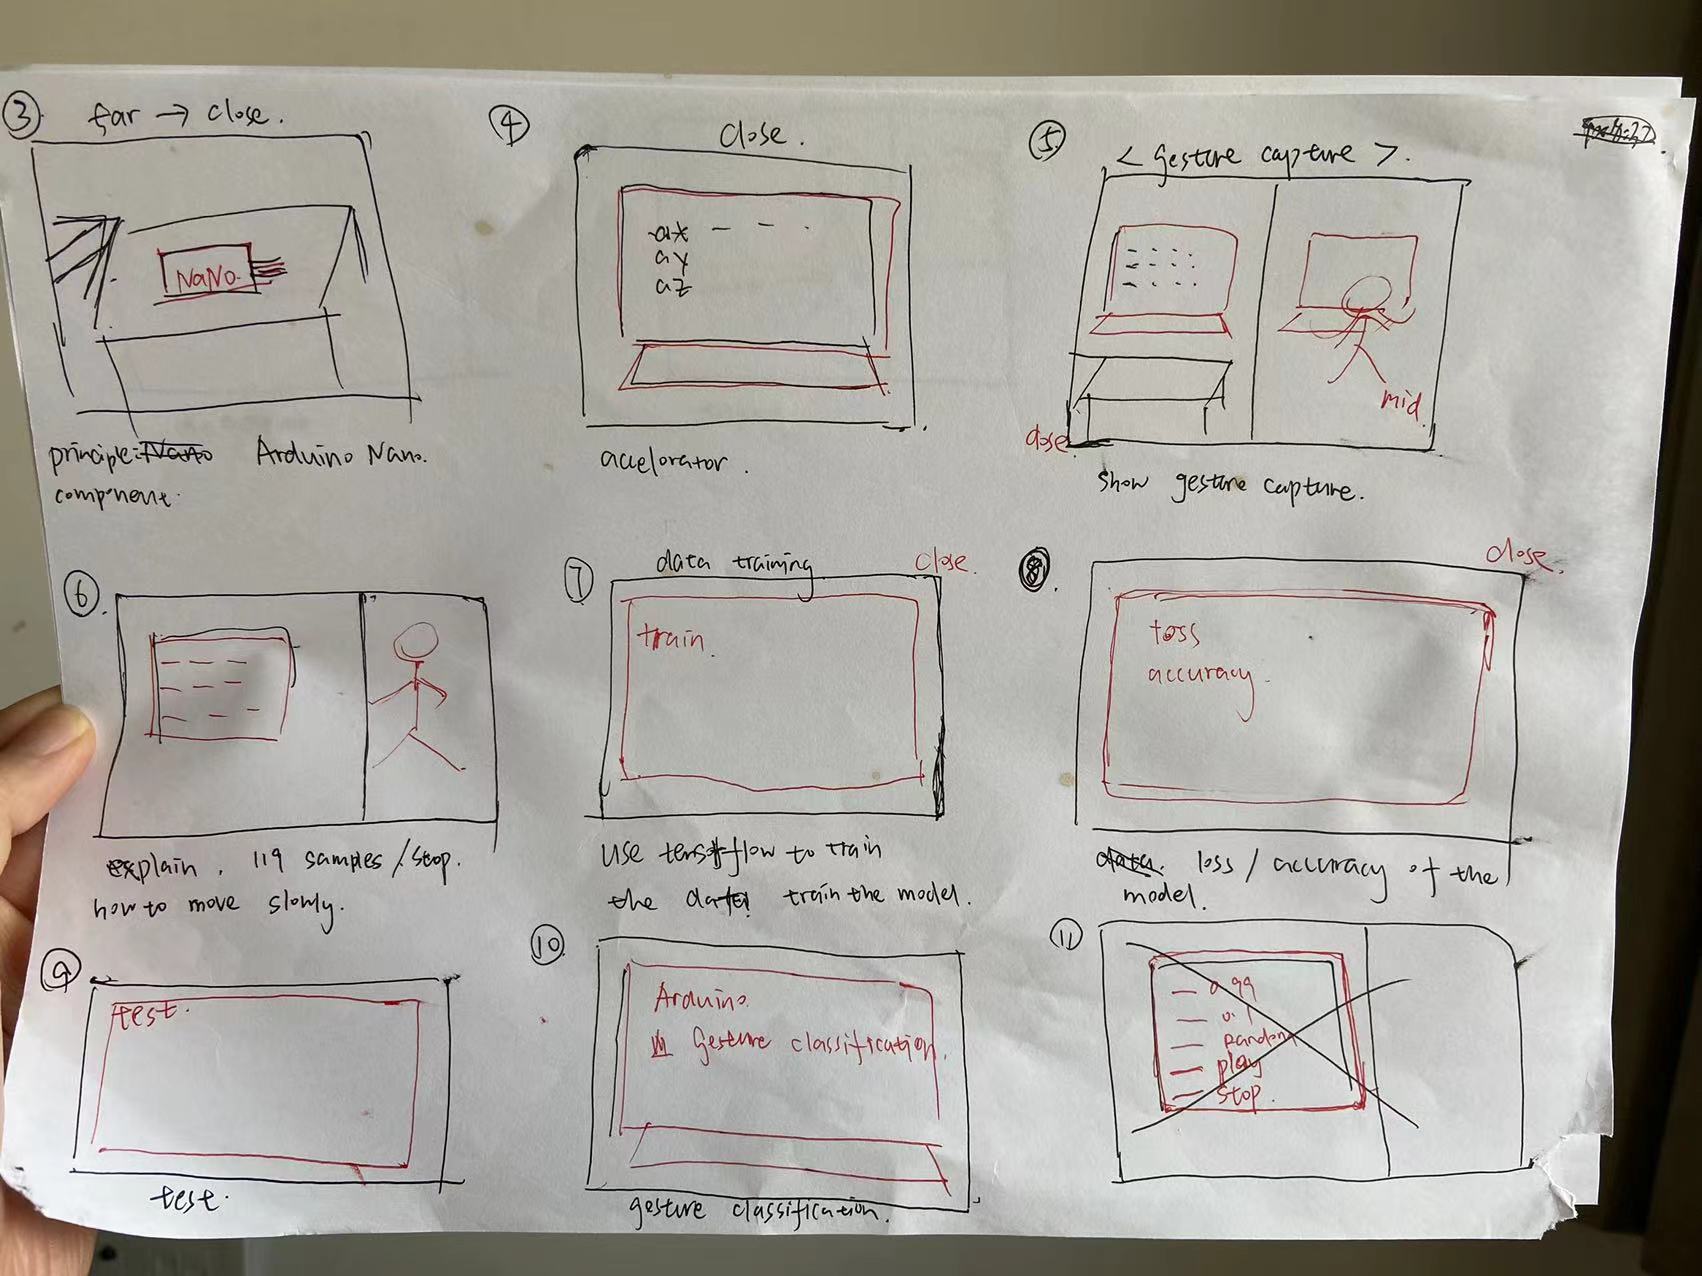 ③ far → close.
NaNo.
principle: Nano Arduino Nano.
component.
④ close.
ax – – .
ay
az
accelorator.
⑤ < gesture capture >.
close
mid
show gesture capture.
⑥
explain. 119 samples / stop.
how to move slowly.
⑦ data training close.
train.
use tensorflow to train
the data train the model.
⑧ close.
loss
accuracy.
data. loss / accuracy of the
model.
⑨
test.
test.
⑩
Arduino.
Gesture classification.
gesture classification.
⑪
— 0.99
— 0.1
— random
— play
— stop.